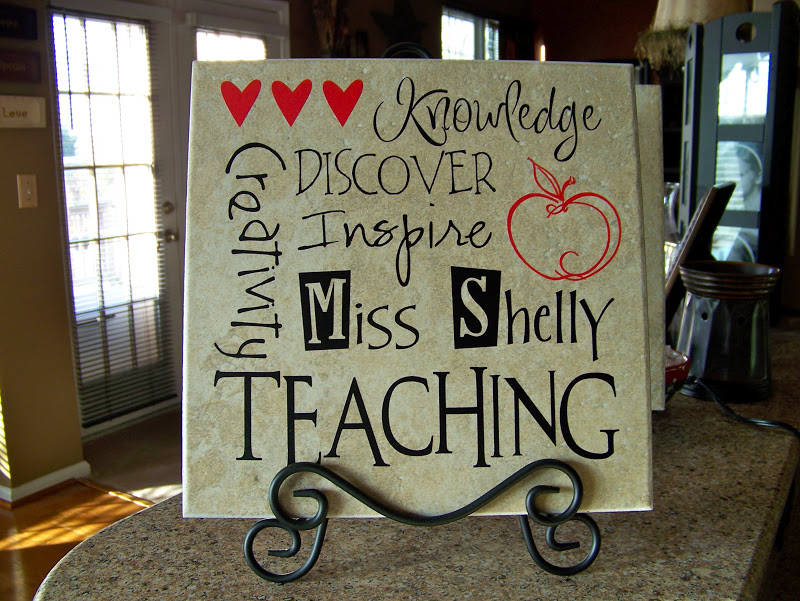 Knowledge
DISCOVER
Creativity
Inspire
Miss Shelly
TEACHING
Love